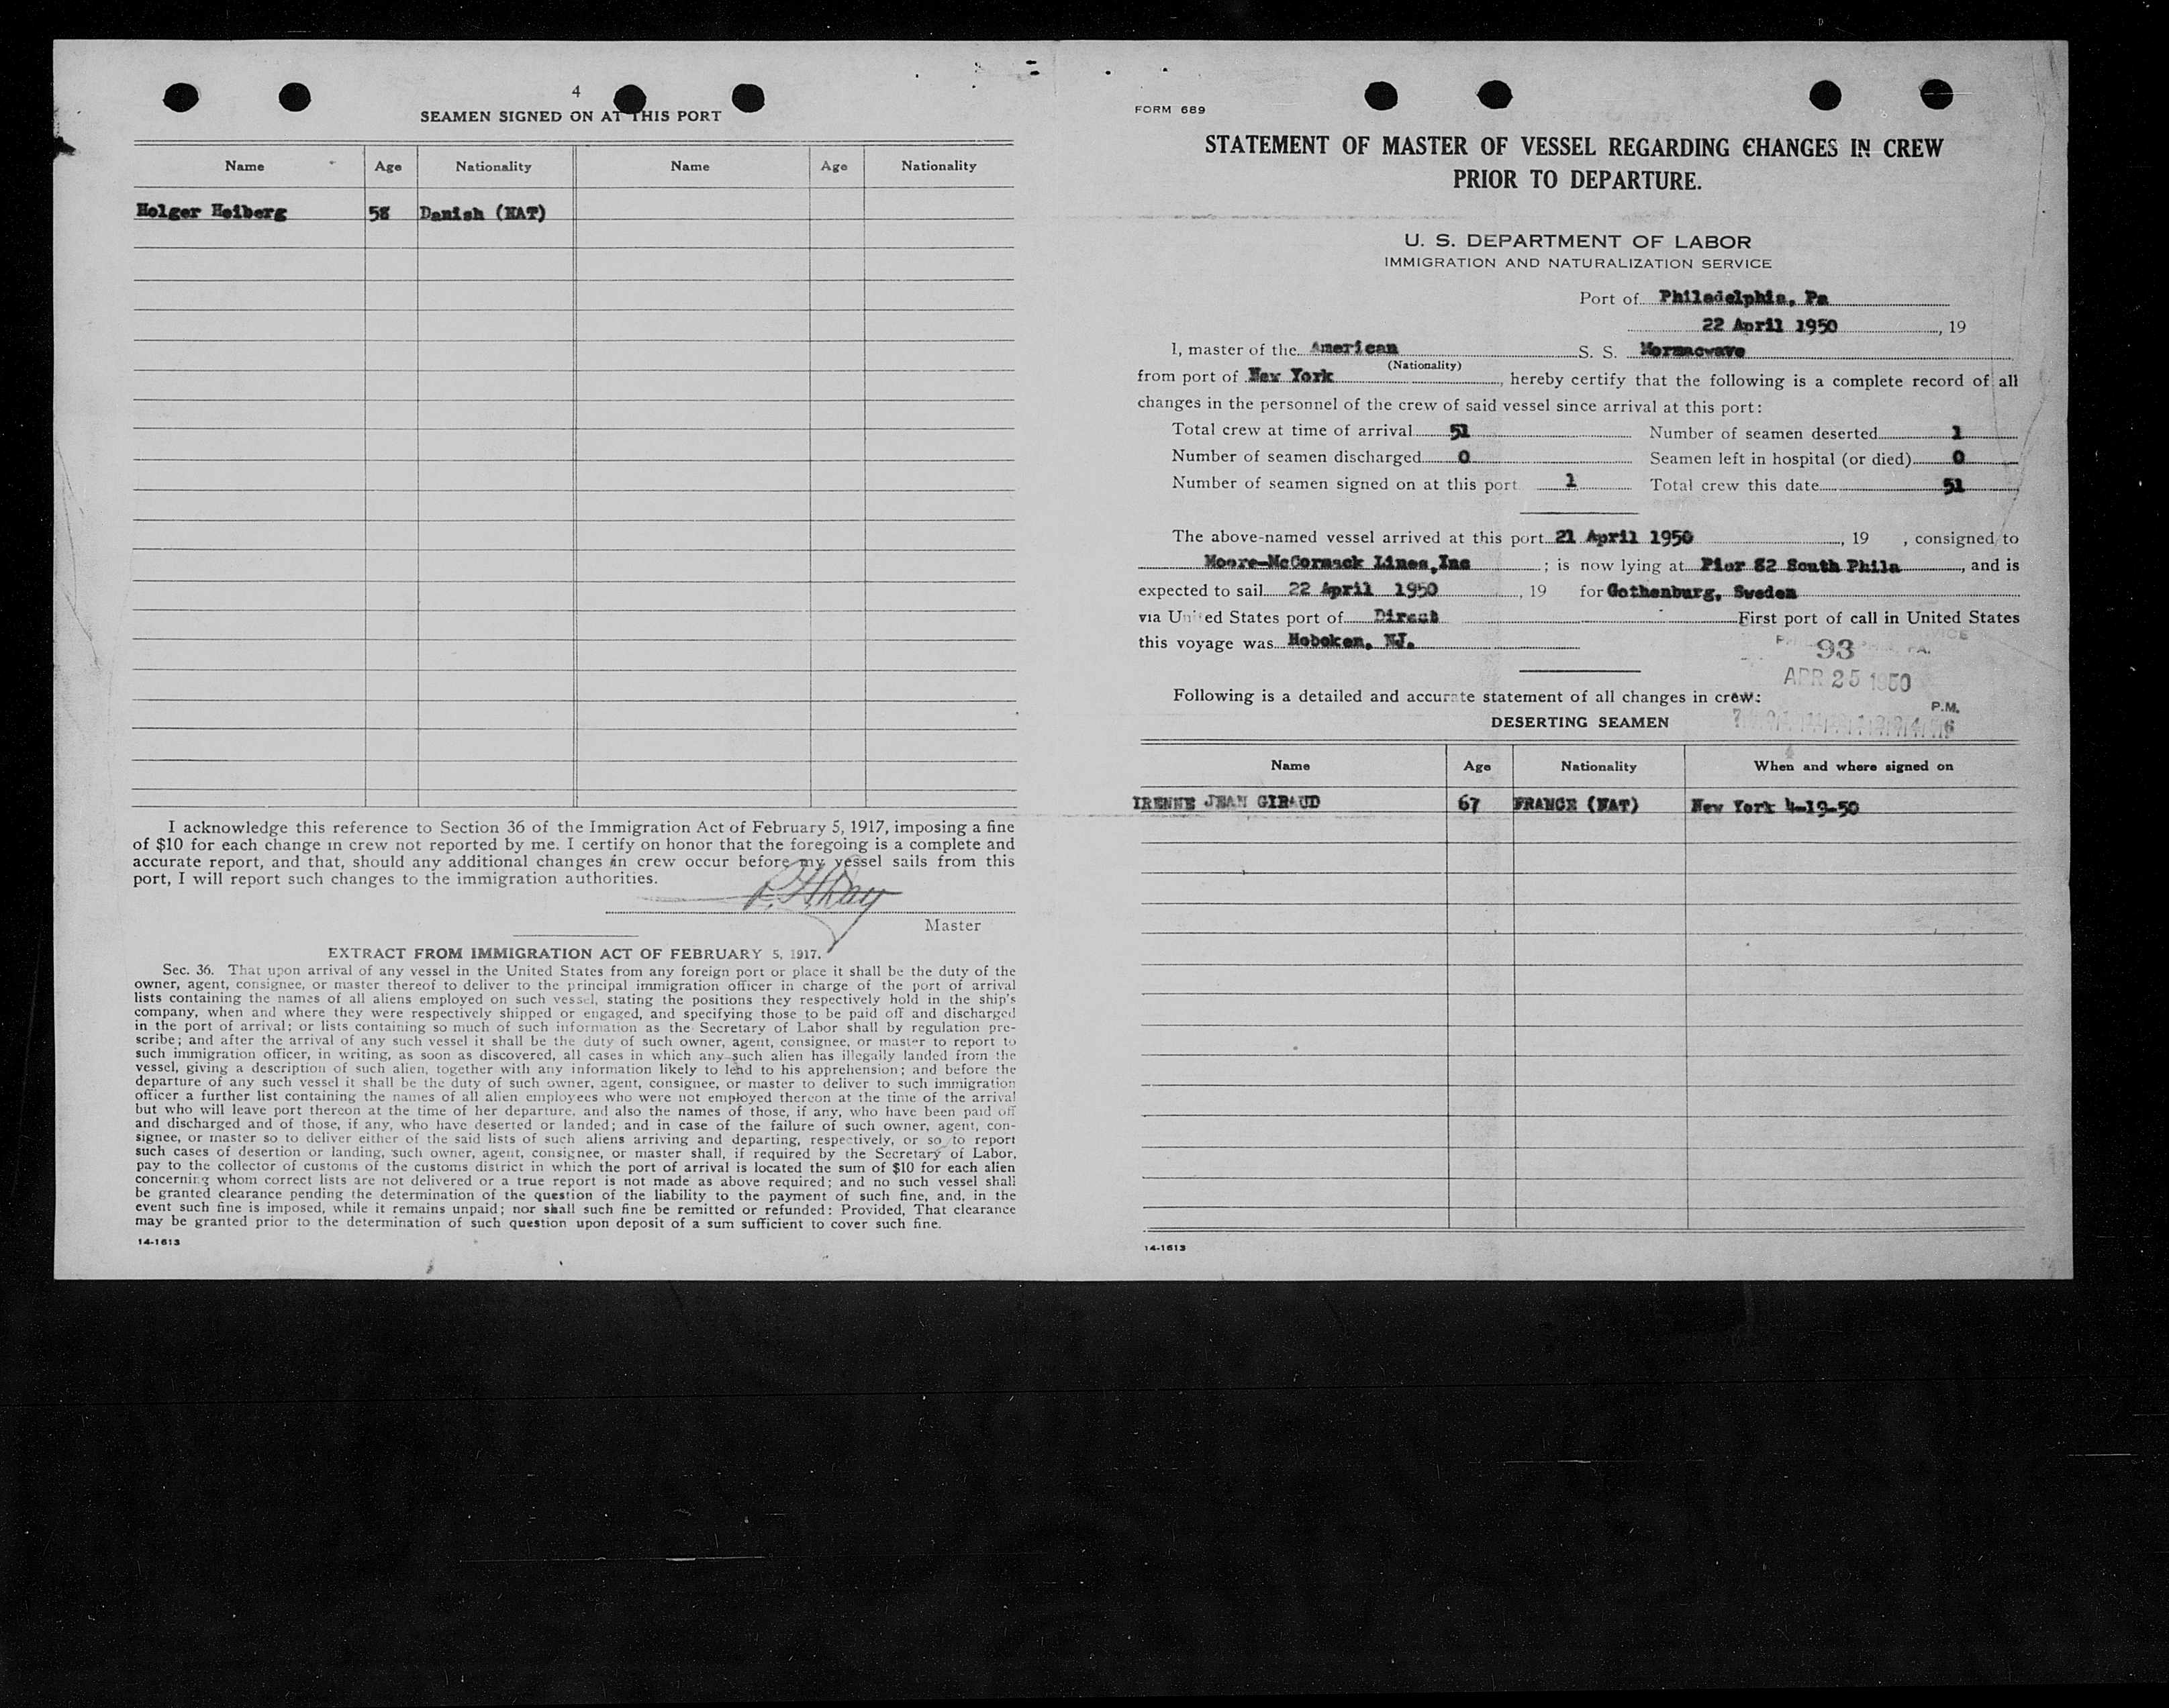 4
SEAMEN SIGNED ON AT THIS PORT
Name Age Nationality Name Age Nationality
Holger Heiberg 58 Danish (NAT)
I acknowledge this reference to Section 36 of the Immigration Act of February 5, 1917, imposing a fine
of $10 for each change in crew not reported by me. I certify on honor that the foregoing is a complete and
accurate report, and that, should any additional changes in crew occur before my vessel sails from this
port, I will report such changes to the immigration authorities.
Master
EXTRACT FROM IMMIGRATION ACT OF FEBRUARY 5, 1917.
Sec. 36. That upon arrival of any vessel in the United States from any foreign port or place it shall be the duty of the
owner, agent, consignee, or master thereof to deliver to the principal immigration officer in charge of the port of arrival
lists containing the names of all aliens employed on such vessel, stating the positions they respectively hold in the ship's
company, when and where they were respectively shipped or engaged, and specifying those to be paid off and discharged
in the port of arrival; or lists containing so much of such information as the Secretary of Labor shall by regulation pre-
scribe; and after the arrival of any such vessel it shall be the duty of such owner, agent, consignee, or master to report to
such immigration officer, in writing, as soon as discovered, all cases in which any such alien has illegally landed from the
vessel, giving a description of such alien, together with any information likely to lead to his apprehension; and before the
departure of any such vessel it shall be the duty of such owner, agent, consignee, or master to deliver to such immigration
officer a further list containing the names of all alien employees who were not employed thereon at the time of the arrival
but who will leave port thereon at the time of her departure, and also the names of those, if any, who have been paid off
and discharged and of those, if any, who have deserted or landed; and in case of the failure of such owner, agent, con-
signee, or master so to deliver either of the said lists of such aliens arriving and departing, respectively, or so to report
such cases of desertion or landing, such owner, agent, consignee, or master shall, if required by the Secretary of Labor,
pay to the collector of customs of the customs district in which the port of arrival is located the sum of $10 for each alien
concerning whom correct lists are not delivered or a true report is not made as above required; and no such vessel shall
be granted clearance pending the determination of the question of the liability to the payment of such fine, and, in the
event such fine is imposed, while it remains unpaid; nor shall such fine be remitted or refunded: Provided, That clearance
may be granted prior to the determination of such question upon deposit of a sum sufficient to cover such fine.
14-1613
FORM 689
STATEMENT OF MASTER OF VESSEL REGARDING CHANGES IN CREW
PRIOR TO DEPARTURE.
U. S. DEPARTMENT OF LABOR
IMMIGRATION AND NATURALIZATION SERVICE
Port of Philadelphia, Pa
22 April 1950, 19
I, master of the American S. S. Mormacwave
(Nationality)
from port of New York, hereby certify that the following is a complete record of all
changes in the personnel of the crew of said vessel since arrival at this port:
Total crew at time of arrival 51 Number of seamen deserted 1
Number of seamen discharged 0 Seamen left in hospital (or died) 0
Number of seamen signed on at this port 1 Total crew this date 51
The above-named vessel arrived at this port 21 April 1950, 19 , consigned to
Moore-McCormack Lines,Inc ; is now lying at Pier 82 South Phila, and is
expected to sail 22 April 1950, 19 for Gothenburg, Sweden
via United States port of Direct First port of call in United States
this voyage was Hoboken, NJ.
93 PA.
APR 25 1950
Following is a detailed and accurate statement of all changes in crew:
P.M.
DESERTING SEAMEN
Name Age Nationality When and where signed on
IRENNE JEAN GIRAUD 67 FRANCE (NAT) New York 4-19-50
14-1613